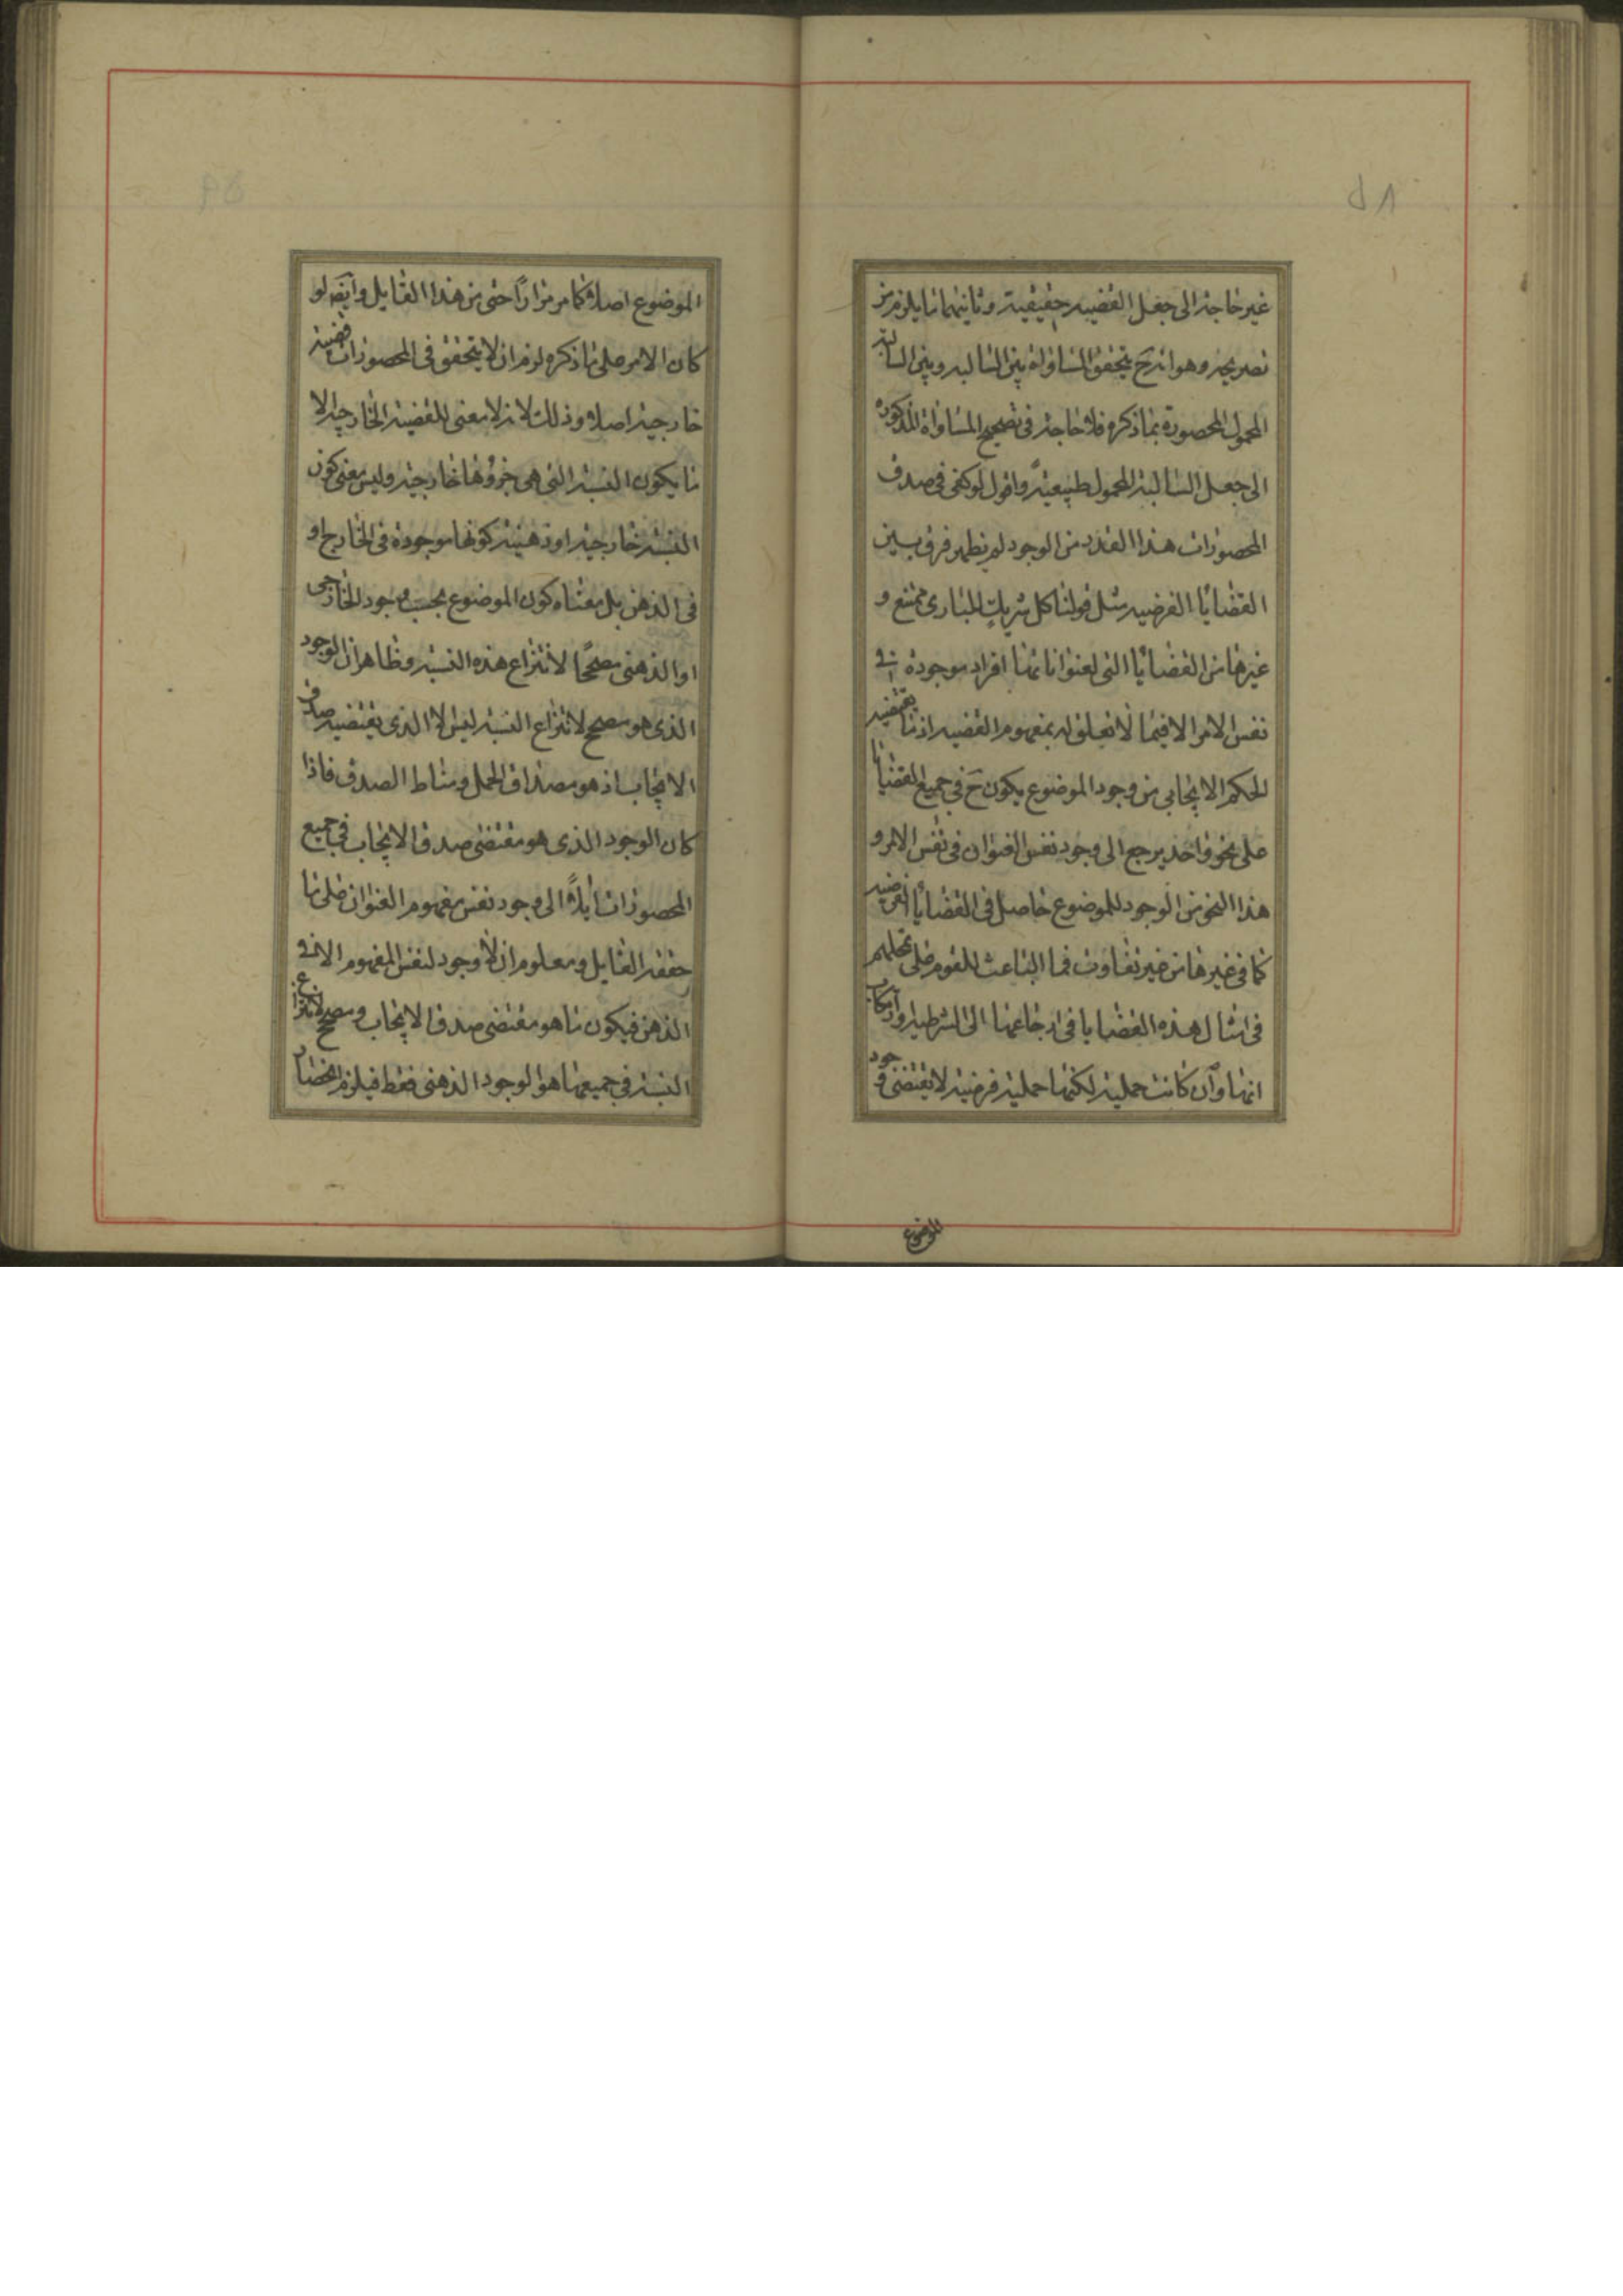 غير حاجة الى جعل القضيه حقيقية وثانيهما ما يلزم من
تصريحه وهو انه ح يتحقق المساواة بين السالبه وبين السالبة
المحمول المحصورة بما ذكره فلا حاجة فى تصحيح المساواة المذكورة
الى جعل السالبة المحمول طبيعيةً واقول لو كفى فى صدق
المحصورات هذا القدر من الوجود لم يظهر فرق بين
القضايا الفرضيه مثل قولنا كل شريك البارى ممتنع و
غيرها من القضايا التى لعنواناتها افراد موجودة فى
نفس الامر الا فيما لا تعلق له بمفهوم القضيه اذ ما يقتضيه
الحكم الايجابى من وجود الموضوع يكون ح فى جميع القضايا
على نحو واحد يرجع الى وجود نفس العنوان فى نفس الامر و
هذا النحو من الوجود للموضوع حاصل فى القضايا الفرضيه
كما فى غيرها من غير تفاوت فما الباعث للقوم على تمحلهم
فى امثال هذه القضايا فى ارجاعها الى الشرطيه وارتكاب
انها وان كانت حملية لكنها حملية فرضية لا يقتضى وجود
للموضوع
الموضوع اصلا كما مر مرارًا حتى من هذا القايل وايضا لو
كان الامر على ما ذكره لزم ان لا يتحقق فى المحصورات قضية
خارجية اصلا وذلك لانه لا معنى للقضية الخارجية الا
ما يكون النسبة التى هى جزؤها خارجية وليس معنى كون
النسبة خارجية او ذهنية كونها موجودة فى الخارج او
فى الذهن بل معناه كون الموضوع بحسب وجود الخارجى
او الذهنى مصححًا لانتزاع هذه النسبة وظاهر ان الوجود
الذى هو مصحح لانتزاع النسبة ليس الا الذى يقتضيه صدق
الايجاب اذ هو مصداق الحمل ومناط الصدق فاذا
كان الوجود الذى هو مقتضى صدق الايجاب فى جميع
المحصورات ايلًا الى وجود نفس مفهوم العنوان على ما
حققه القايل ومعلوم ان لا وجود لنفس المفهوم الا فى
الذهن فيكون ما هو مقتضى صدق الايجاب ومصحح لانتزاع
النسبة فى جميعها هو الوجود الذهنى فقط فيلزم انحصار